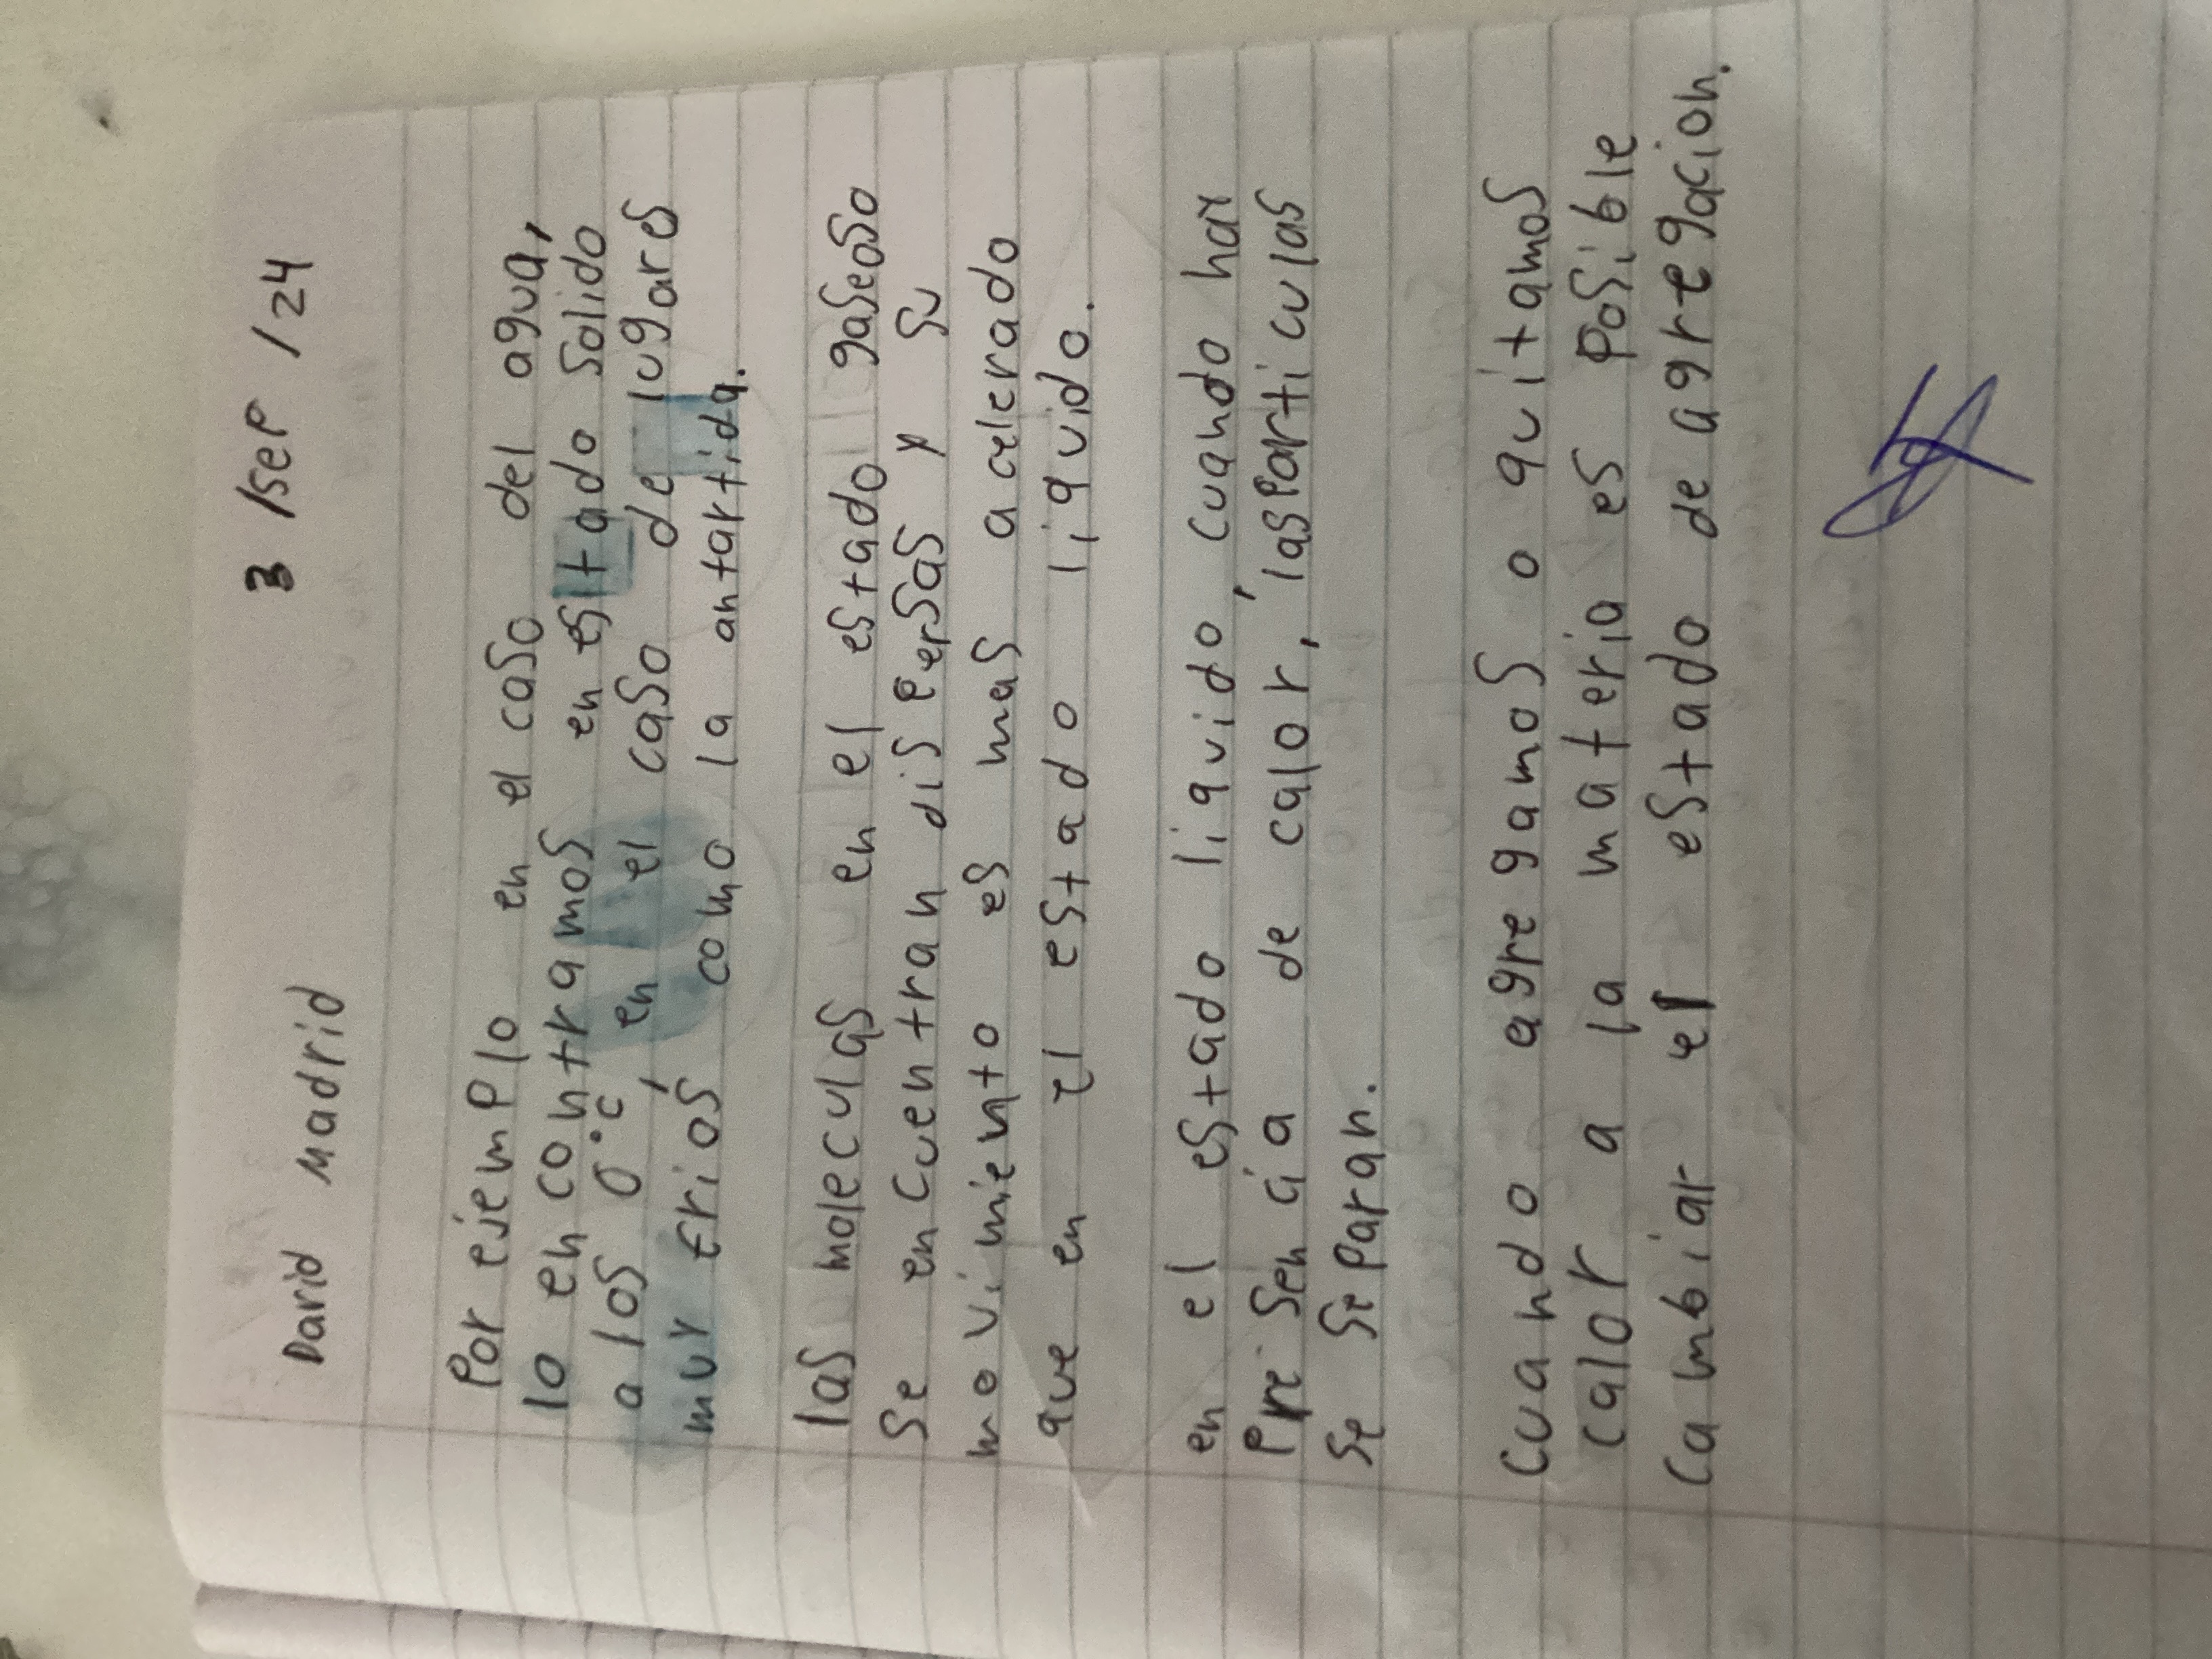 3 /sep /24
David Madrid
Por ejemplo en el caso del agua,
lo encontramos en estado solido
a los 0°c, en el caso de lugares
muy frios como la antartida.
las moleculas en el estado gaseoso
se encuentran dispersas y su
movimiento es mas acelerado
que en el estado liquido.
en el estado liquido, cuando hay
presencia de calor, las particulas
se separan.
cuando agregamos o quitamos
calor a la materia es posible
cambiar el estado de agregacion.